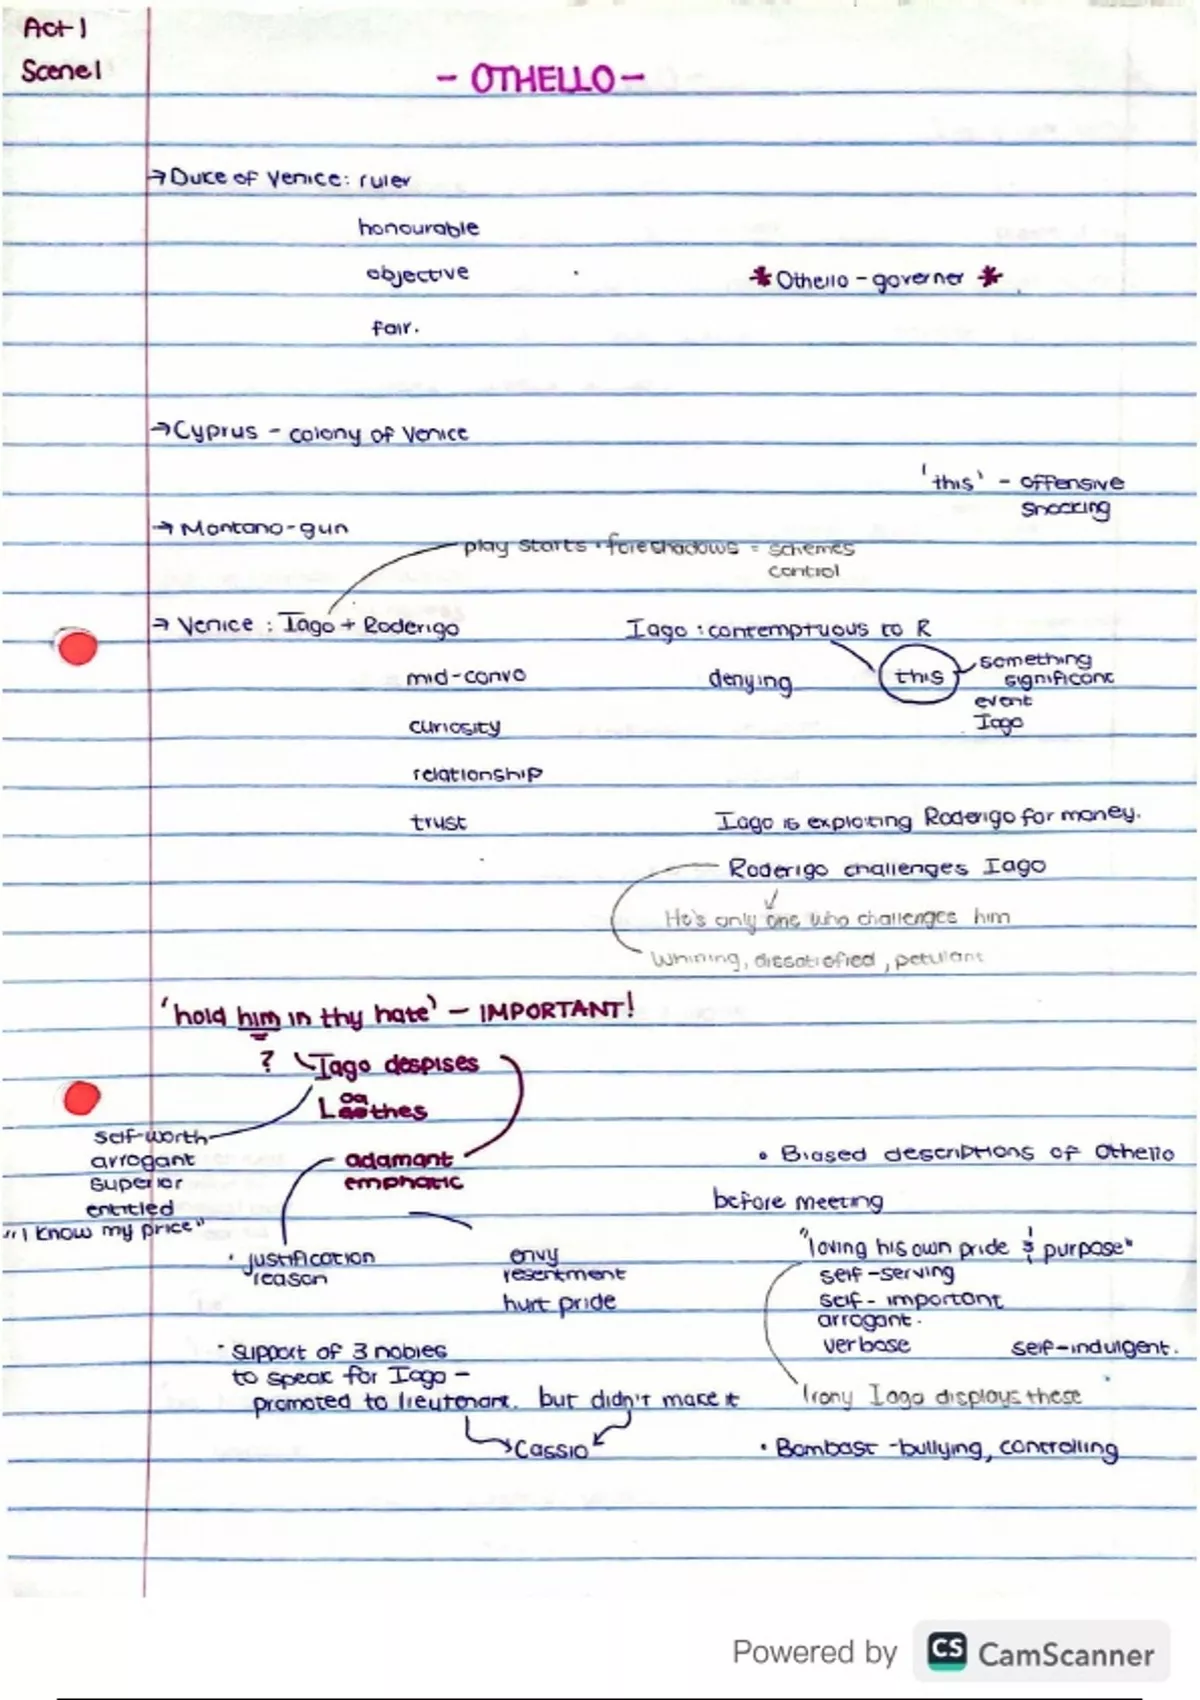 Act 1
Scene 1
- OTHELLO -
→ Duke of Venice: ruler
honourable
objective
* Othello - governer *
fair.
→ Cyprus - colony of Venice
'this' - offensive
shocking
→ Montano - gun
play starts · foreshadows = schemes
control
→ Venice : Iago + Roderigo
Iago : contemptuous to R
mid-convo
denying
this
something
significant
event
Iago
curiosity
relationship
trust
Iago is exploiting Roderigo for money.
Roderigo challenges Iago
He's only one who challenges him
Whining, dissatisfied, petulant
'hold him in thy hate' - IMPORTANT!
? Iago despises
Loathes
self-worth
arrogant
superior
entitled
"I know my price"
adamant
emphatic
• Biased descriptions of Othello
before meeting
· justification
reason
envy
resentment
hurt pride
"loving his own pride & purpose"
self-serving
self-important
arrogant.
verbose
self-indulgent.
· support of 3 nobles
to speak for Iago -
promoted to lieutenant. but didn't make it
Cassio
Irony Iago displays these
• Bombast - bullying, controlling
Powered by CS CamScanner